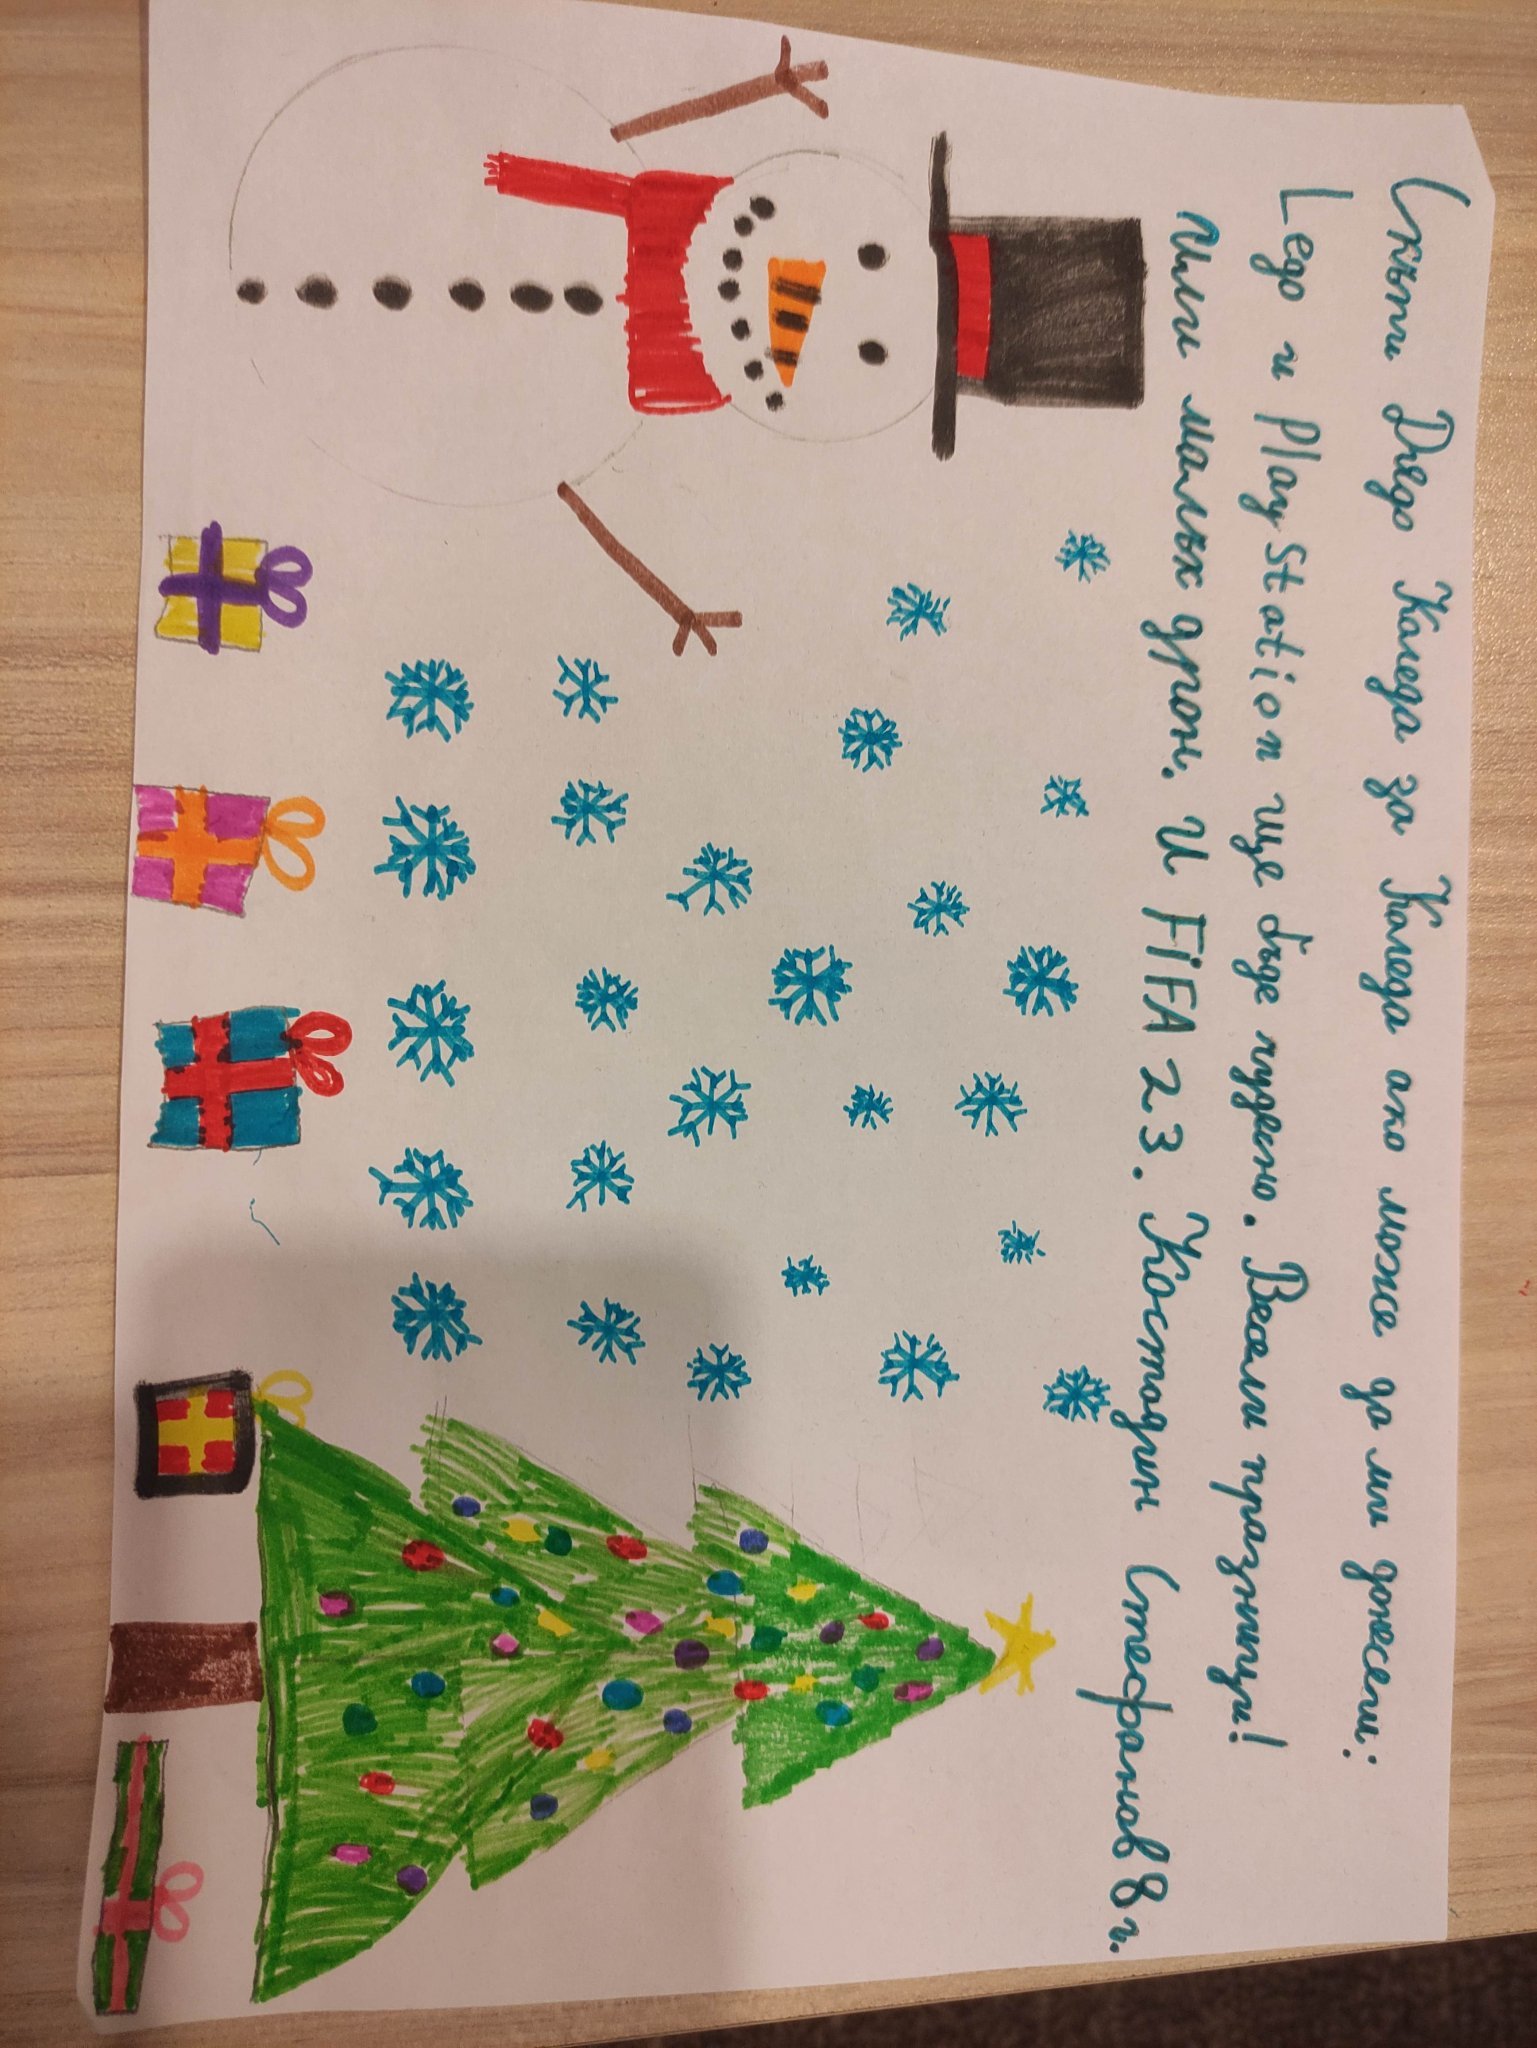 Скъпи Дядо Коледа за Коледа ако може да ми донесеш:
Lego и PlayStation ще бъде чудесно. Весели празници!
Или малък дрон. И FiFA 23. Костадин Стефанов 8г.